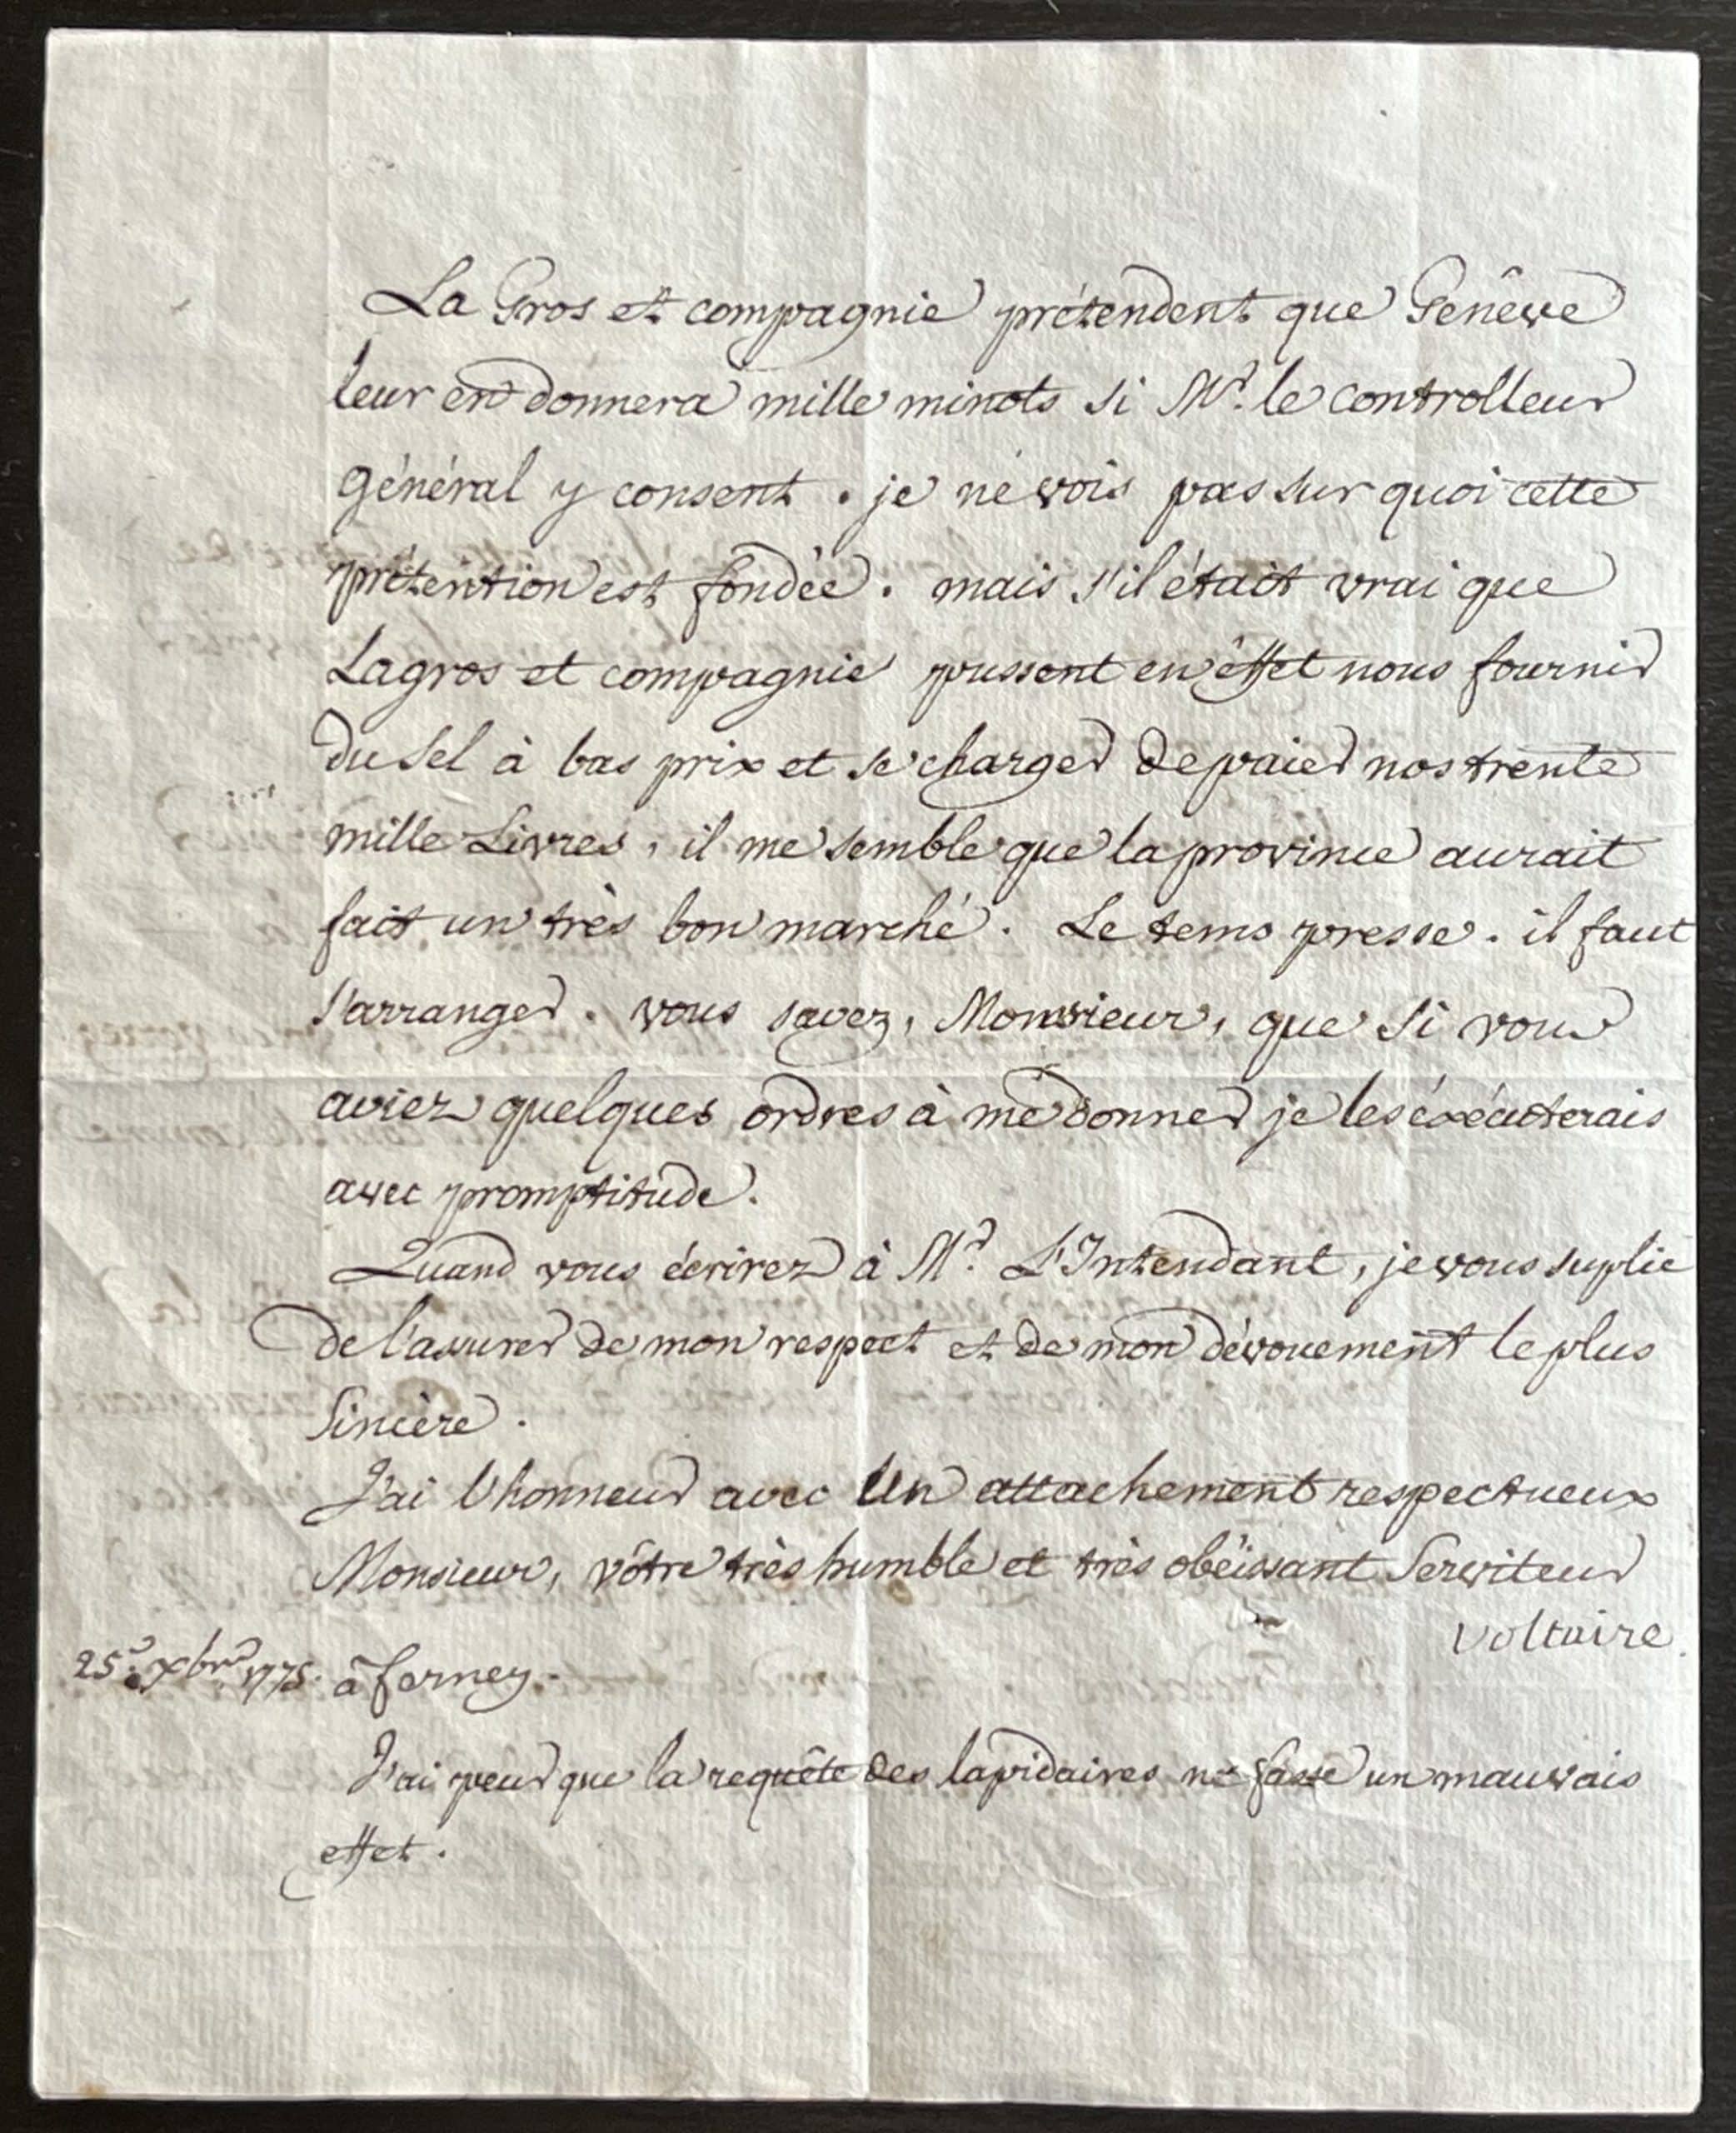 La Gros et compagnie prétendent que Genêve
leur en donnera mille minots si Mr. le controlleur
général y consent. je ne vois pas sur quoi cette
prétention est fondée. mais s'il était vrai que
Lagros et compagnie pussent en éffet nous fournir
du sel à bas prix et se charger de paier nos trente
mille Livres, il me semble que la province aurait
fait un très bon marché. Le tems presse. il faut
s'arranger. vous savez, Monsieur, que si vous
aviez quelques ordres à me donner je les éxécuterais
avec promptitude.
Quand vous écrirez à Mr. L'Intendant, je vous suplie
de l'assurer de mon respect et de mon dévouement le plus
sincère.
J'ai l'honneur avec un attachement respectueux
Monsieur, vôtre très humble et très obéissant Serviteur
voltaire
25e. xbre. 1775. à ferney.
J'ai peur que la requête des lapidaires ne fasse un mauvais
effet.